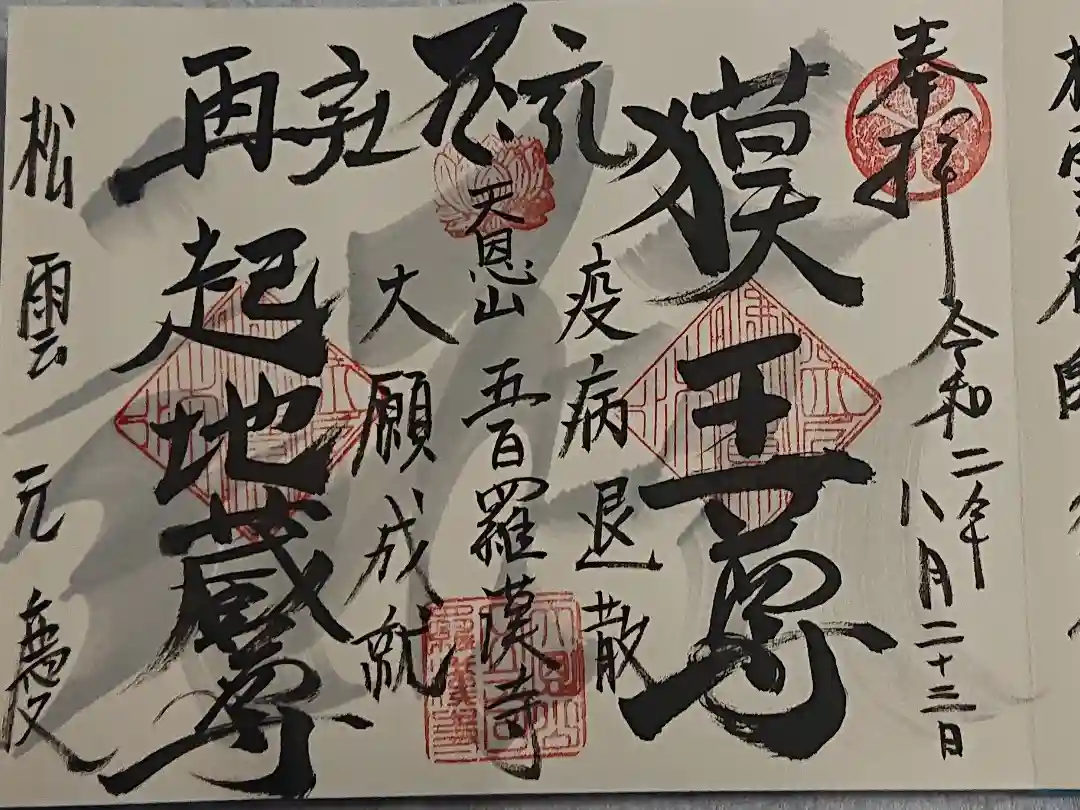 奉拝 令和二年
八月二十三日
獏王尊
疫病退散
天恩山 五百羅漢寺
大願成就
再起地蔵尊
松雲元慶